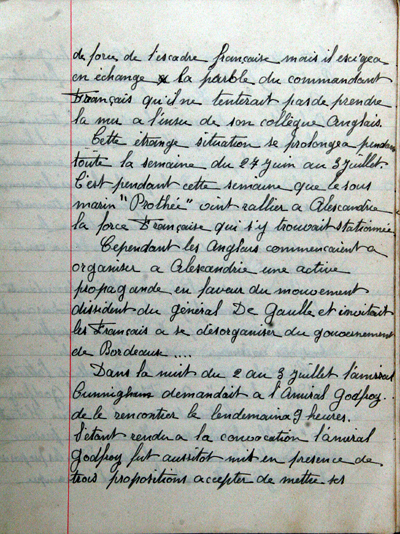 de force de l'escadre française mais il esigea
en échange la parole du commandant
Français qu'il ne tenterait pas de prendre
la mer a l'insu de son collègue Anglais.
Cette étrange situation se prolongea pendan
toute la semaine du 27 juin au 3 juillet.
C'est pendant cette semaine que le sous
marin "Prothée" vint rallier a Alescandrie
la force Française qui s'y trouvait stationnée
Cependant les Anglais commencaient a
organiser a Alescandrie une active
propagande en faveur du mouvement
dissident du général De Gaulle et invitait
les Français a se desorganiser du gouvernement
de Bordeaux ....
Dans la nuit du 2 au 3 juillet l'amiral
Cunnigham demandait a l'Amiral Godfroy
de le rencontrer le lendemain a 9 heures.
S'étant rendu a la convocation l'amiral
Godfroy fut aussitot mit en presence de
trois propositions accepter de mettre ses